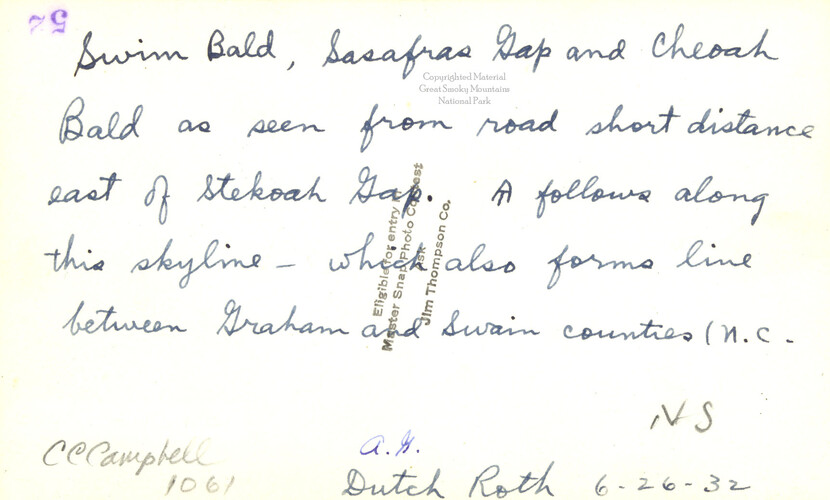 52
Swim Bald, Sasafras Gap and Cheoah
Copyrighted Material
Great Smoky Mountains
National Park
Bald as seen from road short distance
east of Stekoah Gap. A follows along
this skyline — which also forms line
between Graham and Swain counties (N.C.
Eligible for entry
Master Snap Photo Contest
Ask
Jim Thompson Co.
NS
CCCampbell
1061
Dutch Roth 6-26-32